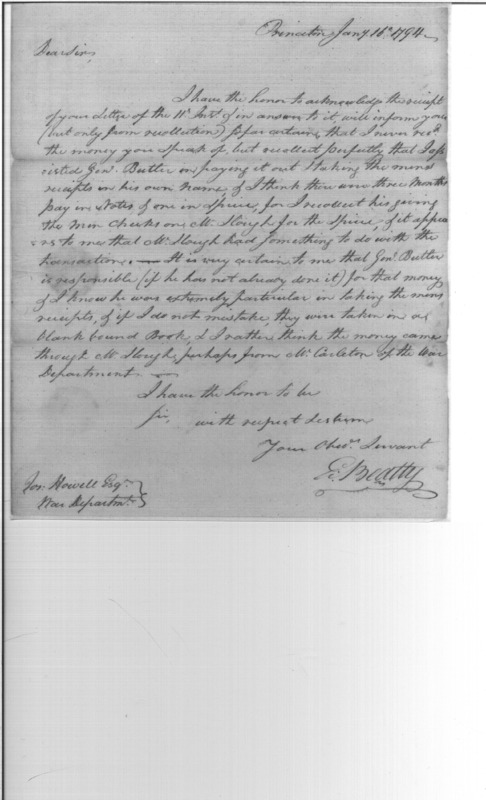 Princeton Jany. 16th. 1794
Dear Sir,
I have the honor to acknowledge the receipt
of your Letter of the 11th. Inst. & in answer to it will inform you
(but only from recollection) so far certain, that I never recd.
the money you speak of, but recollect perfectly that I ass
isted Genl. Butler in paying it out & taking the mens
receipts in his own name, & I think there were three Months
pay in Notes & one in Specie, for I recollect his giving
the men Checks on Mr. Slough for the Specie, & it appea
rs to me that Mr. Slough had something to do with the
transaction. — It is very certain to me that Genl. Butler
is responsible (if he has not already done it) for that money
& I know he was extremely particular in taking the mens
receipts, & if I do not mistake, they were taken in a
blank bound Book, & I rather think the money came
through Mr. Slough, perhaps from Mr. Carleton of the War
Department. —
I have the honor to be
Sir, with respect & esteem
Your Obedt. Servant
E. Beatty
Jos. Howell Esqr.
War Departmt.